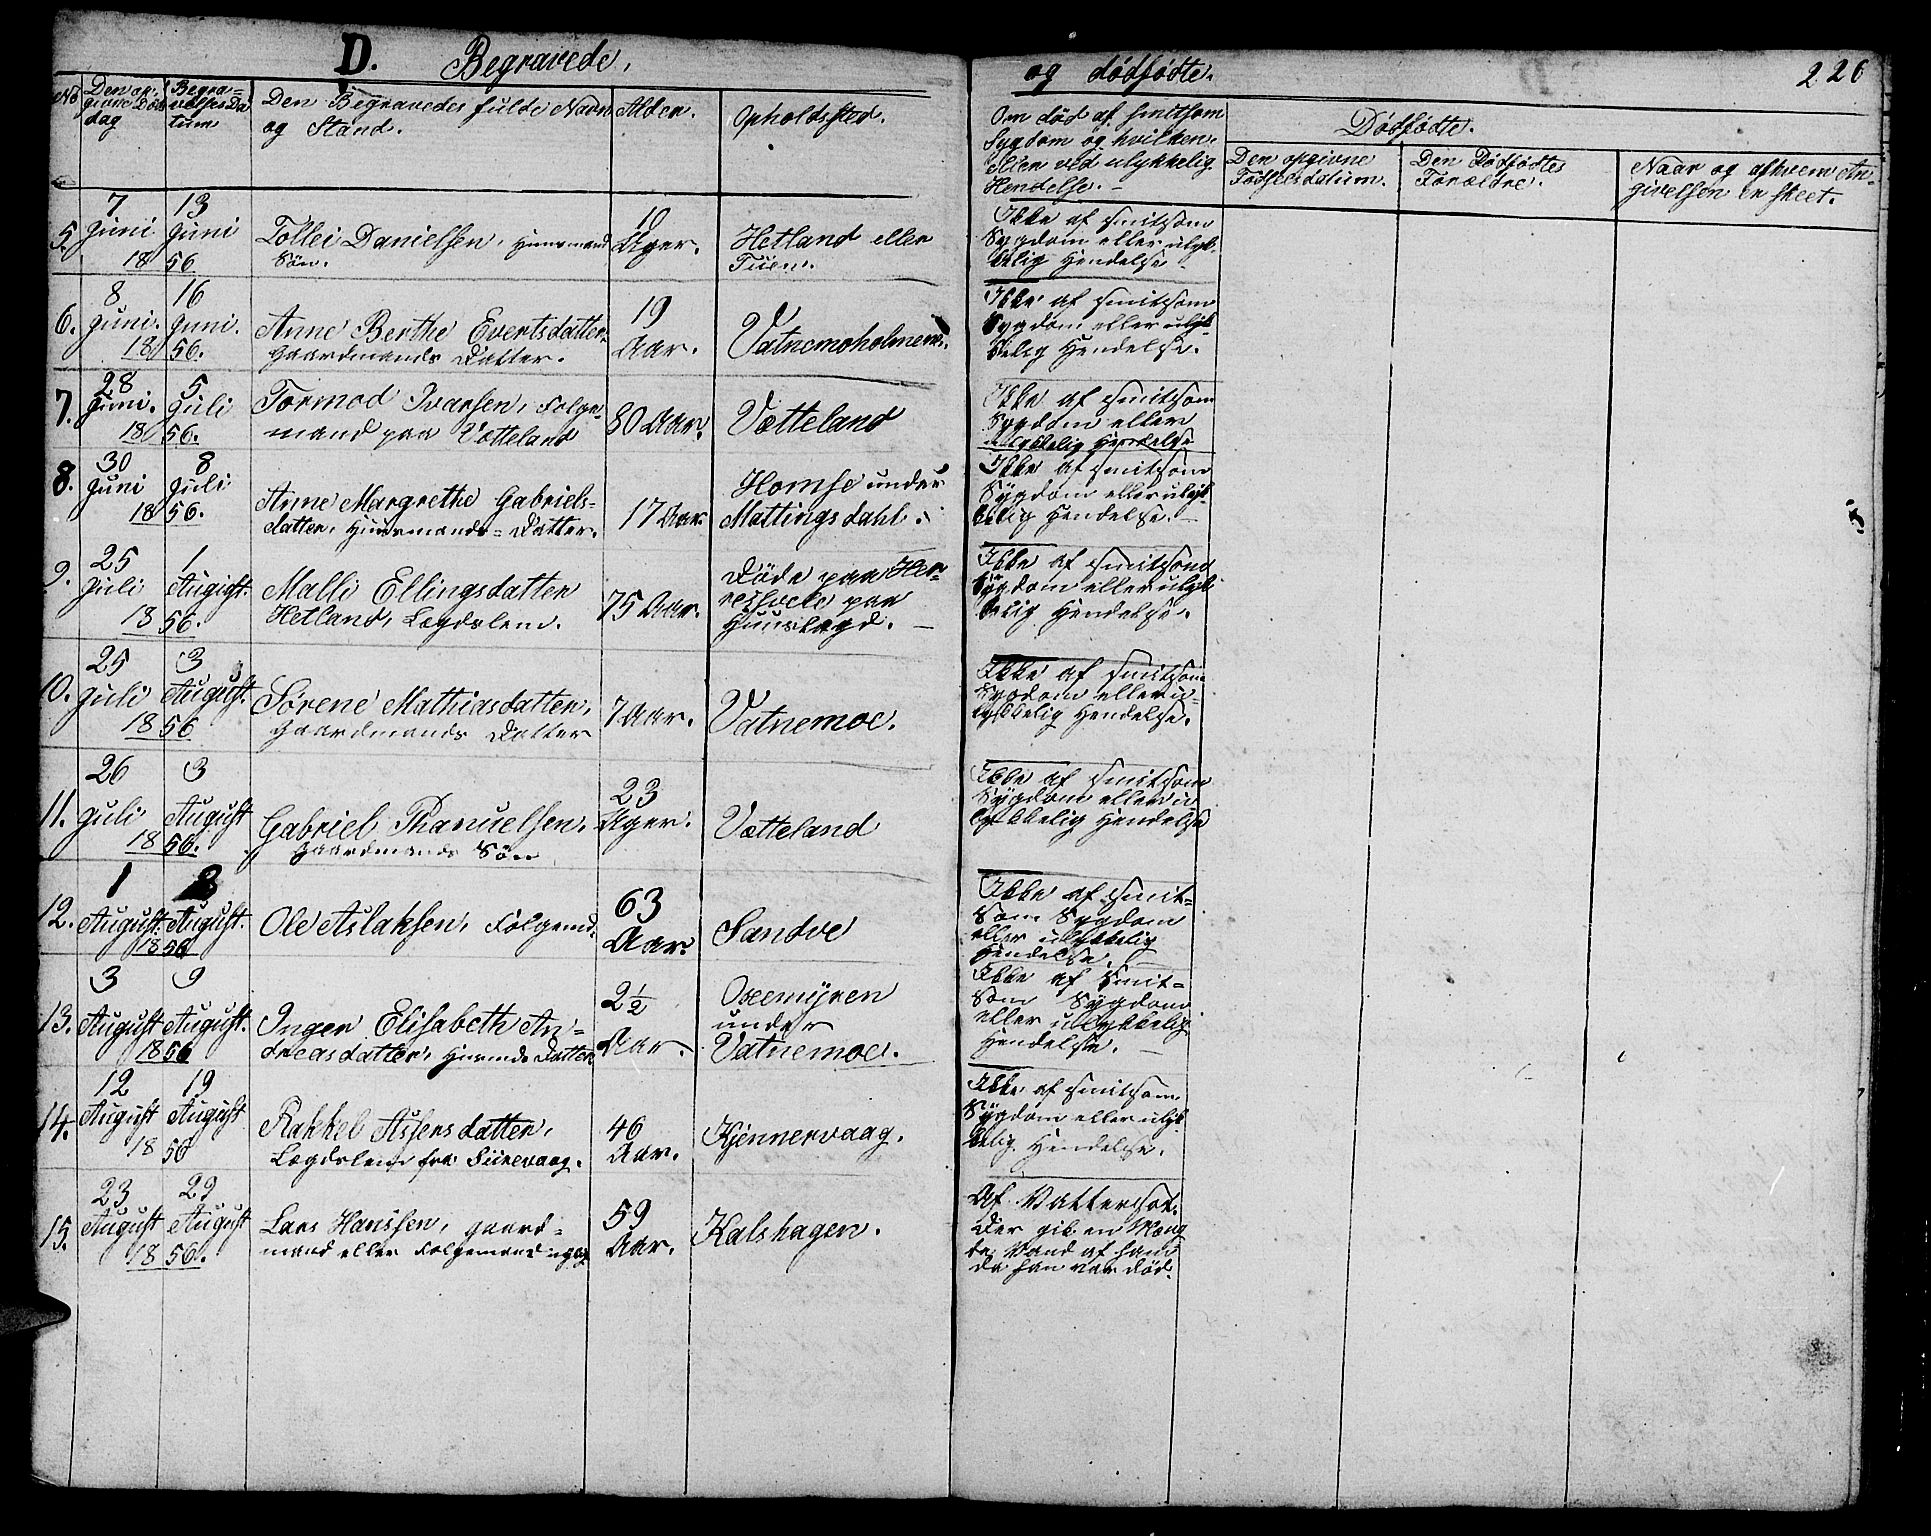 D. Begravede,
og dødfødte.
226
No
Den opgivne Dødsdag
Begravelses Datum
Den Begravedes fulde Navn og Stand.
Alder.
Opholdssted.
Om død af smitsom
Sygdom og hvilken,
eller ved ulykkelig
Hendelse. –
Dødfødte.
Den opgivne
Fødselsdatum.
Den Dødfødtes
Forældre.
Naar og afhvem An-
givelsen er skeet.
5. 7 Juni 18 13 Juni 56
Tollei Danielsen, Huusmands
Søn.
10 Uger.
Hetland eller
Tuen.
Ikke af smitsom
Sygdom eller ulyk-
kelig Hendelse
6. 8 Juni. 18 16 Juni. 56.
Anne Berthe Evertsdatter.
Gaardmands Datter.
19 Aar.
Vatnemoholmen.
Ikke af smitsom
Sygdom eller ulyk-
kelig Hendelse.
7. 28 Juni. 18 5 Juli 56.
Tormod Ivarsen, Folge-
mand paa Vætteland
80 Aar.
Vætteland
Ikke af smitsom
Sygdom eller
ulykkelig Hendelse
8. 30 Juni 18 8 Juli 56.
Anne Margrethe Gabriels=
datter, Huusmands=Datter.
17 Aar.
Homse under
Mattingsdahl.
Ikke af smitsom
Sygdom eller ulyk-
kelig Hendelse. –
9. 25 Juli 18 1 August. 56.
Malli Ellingsdatter
Hetland, Lægdslem.
75 Aar.
Døde paa Her-
paa
Huuslægd. –
Ikke af smitsom
Sygdom eller ulyk-
kelig Hendelse.
10. 25 Juli 18 3 August. 56
Sørene Mathiasdatter,
Gaardmands Datter
7 Aar.
Vatnemoe.
Ikke af smitsom
Sygdom eller u-
lykkelig Hendelse.
11. 26 Juli 18 3 August 56.
Gabriel Thanuelsen.
Gaardmands Søn
23 Uger.
Vætteland
Ikke af smitsom
Sygdom eller u-
lykkelig Hendelse
12. 1 August. 18 8 August. 56
Ole Aslaksen, Folgemd.
63 Aar.
Sandve
Ikke af smit=
som Sygdom
eller ulykkelig
Hendelse.
13. 3 August 18 9 August. 56
Inger Elisabeth An=
dreasdatter, Huusmds Datter
2½ Aar.
Osemyren
under
Vatnemoe.
Ikke af smit=
som Sygdom
eller ulykkelig
Hendelse. –
14. 12 August 18 19 August 56
Rakkel Assersdatter,
Lægdslem fra Siirevaag.
46 Aar.
Kjennervaag.
Ikke af smitsom
Sygdom eller ulyk-
kelig Hendelse.
15. 23 August 18 29 August 56.
Lars Hanssen, gaard=
mand eller Folgemand
59 Aar.
Kalshagen.
Af Vattersot.
Der gik en Mæng
de Vand af ham
da han var død.